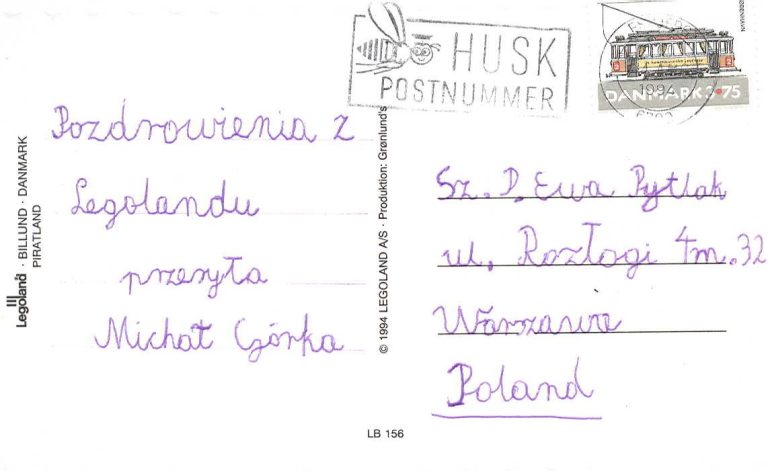 HUSK
POSTNUMMER
1994
DANMARK 3.75
Pozdrowienia z
Legolandu
przesyła
Michał Górka
Sz. P. Ewa Pytlak
ul. Rozłogi 4m.32
Warszawa
Poland
Legoland · BILLUND · DANMARK
PIRATLAND
© 1994 LEGOLAND A/S · Produktion: Grønlund's
LB 156